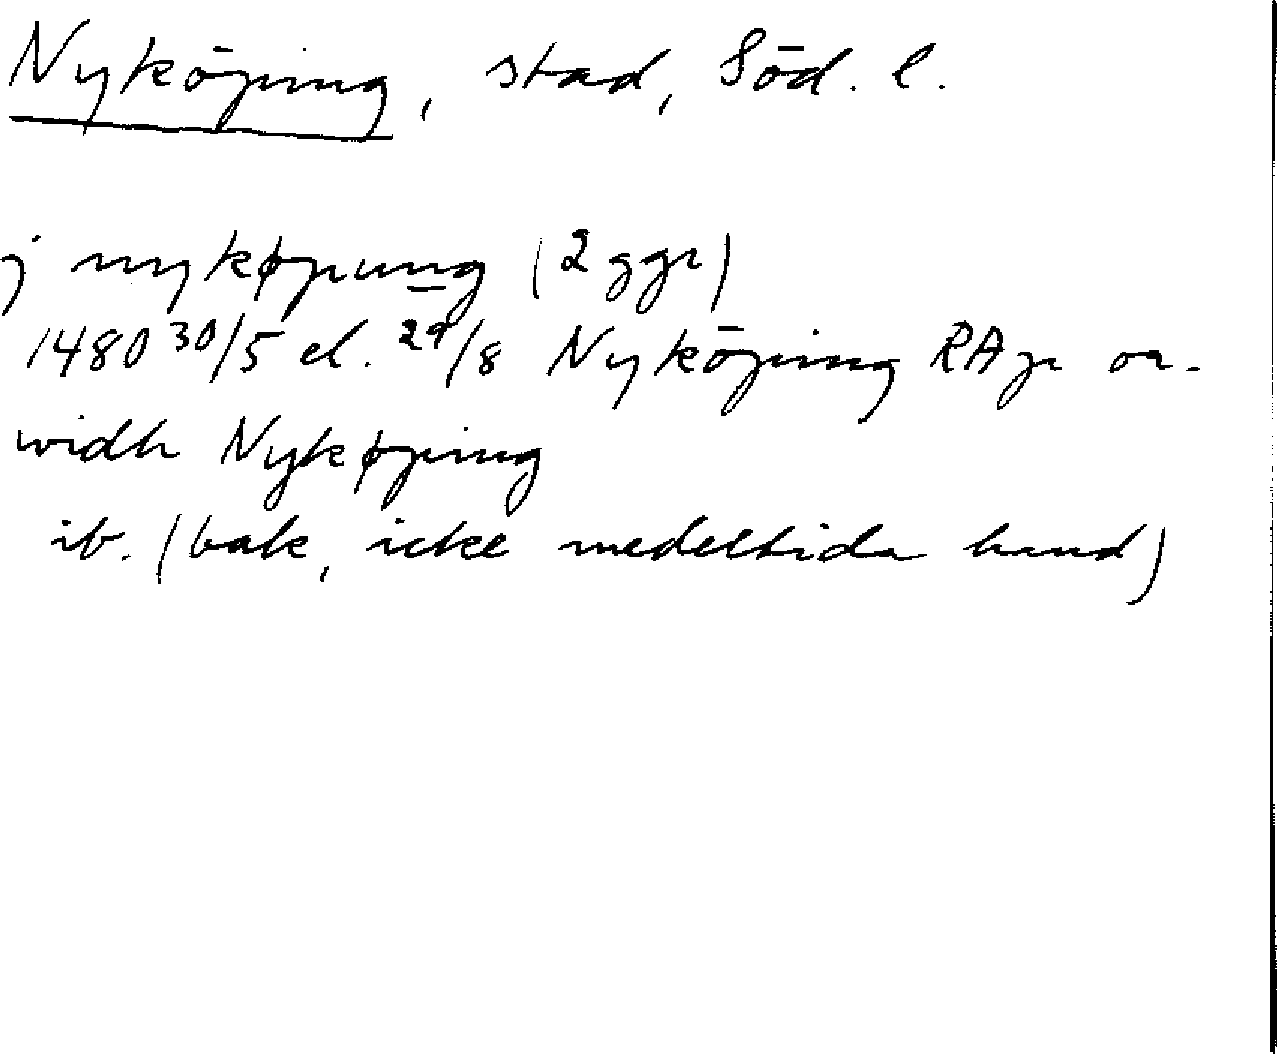 Nyköping, stad, Söd. l.
j nykøpung (2 ggr)
1480 30/5 el. 29/8 Nyköping RAp or.
widh Nykøping
ib. (bak, icke medeltida hand)